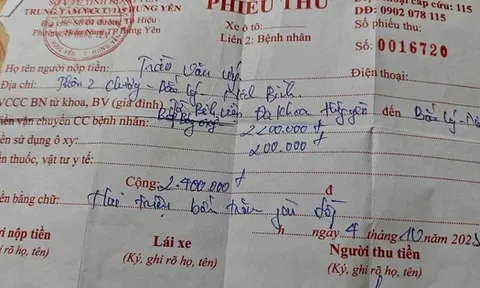 SỞ Y TẾ TỈNH HƯNG YÊN
TRUNG TÂM VCCC 115 HƯNG YÊN
Địa chỉ: Số 01 đường Tô Hiệu
Phường Hiến Nam, TP Hưng Yên
PHIẾU THU
Xe ô tô:
Liên 2: Bệnh nhân
Điện thoại cấp cứu: 115
DĐ: 0902 078 115
Số phiếu thu:
Số: 0016720
Họ tên người nộp tiền: Trần Văn
Địa chỉ: Thôn 2 - Bắc Lý - Bình
Điện thoại:
VCCC BN từ khoa, BV (giá định) Bệnh viện Đa khoa đến Bắc Lý -
tiền vận chuyển CC bệnh nhân: 2200.000đ
tiền sử dụng ô xy: 200.000đ
tiền thuốc, vật tư y tế:
Cộng: 2.400.000đ đ
tiền bằng chữ: Hai triệu bốn trăm đồng
h ngày 4 tháng 10 năm 2025
Người nộp tiền
(Ký, ghi rõ họ, tên)
Lái xe
(Ký, ghi rõ họ, tên)
Người thu tiền
(Ký, ghi rõ họ, tên)